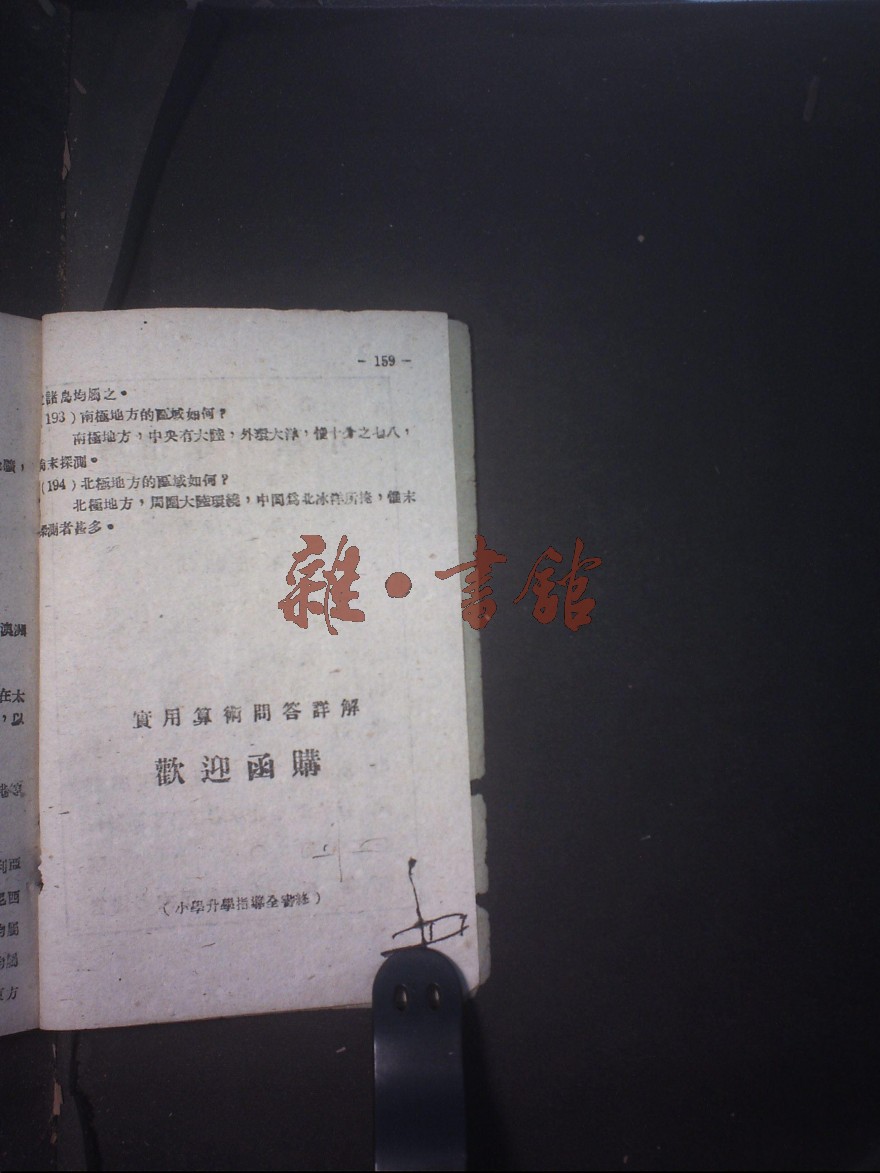 - 159 -
諸島均屬之。
193)南極地方的區域如何?
南極地方,中央有大陸,外環大洋,惟十分之七八,
尚未探測。
(194)北極地方的區域如何?
北極地方,周圍大陸環繞,中間爲北冰洋所掩,惟未
探測者甚多。
雜·書館
實用算術問答詳解
歡迎函購
(小學升學指導全書終)
澳洲
在太
,以
均屬
方